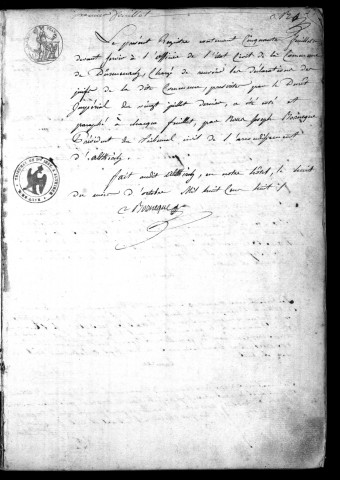 Le présent Registre contenant Cinquante feuillets
devant servir à l'officier de l'état Civil de la Commune
de Durmenach, Chargé de recevoir les déclarations des
juifs de la dite Commune, prescrite par le Décret
Impérial du vingt juillet dernier, a été coté et
paraphé à chaque feuillet, par Nous Joseph
Président du Tribunal civil de l'arrondissement
d'altkirch
fait audit altkirch, en notre hôtel, le
du mois d'octobre Mil huit Cent huit